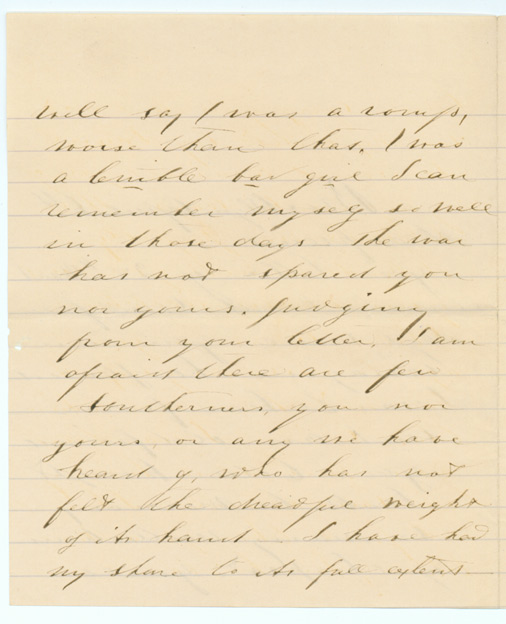 well say I was a romp,
worse than that. I was
a terrible bad girl I can
remember myself so well
in those days. The war
has not spared you
nor yours. Judging
from your letter, I am
afraid there are few
Southerners, you nor
yours, or any we have
heard of, who has not
felt the dreadful weight
of its hand. I have had
my share to its full extent